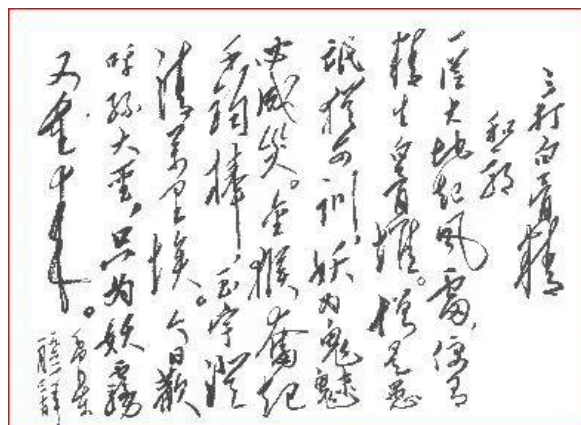 三打白骨精
和郭
一從大地起風雷，便有
精生白骨堆。僧是愚
氓猶可訓，妖為鬼魅
必成災。金猴奮起
千鈞棒，玉宇澄
清萬里埃。今日歡
呼孫大聖，只為妖霧
又重來。